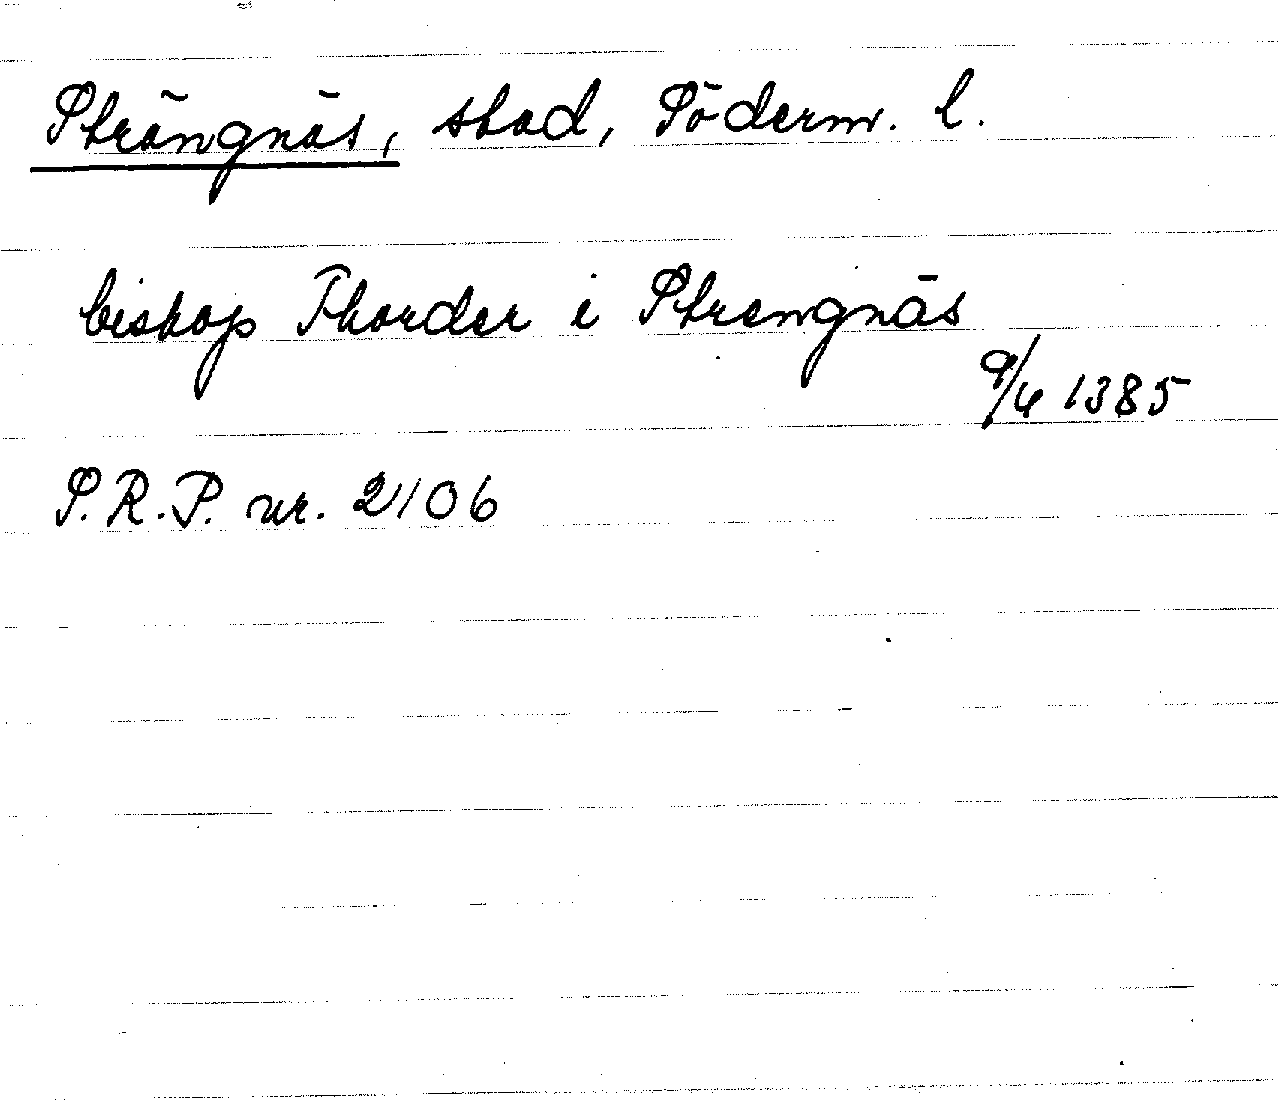 Strängnäs, stad, Söderm. l.
biskop Thorder i Strengnäs
9/4 1385
S.R.P. nr. 2106